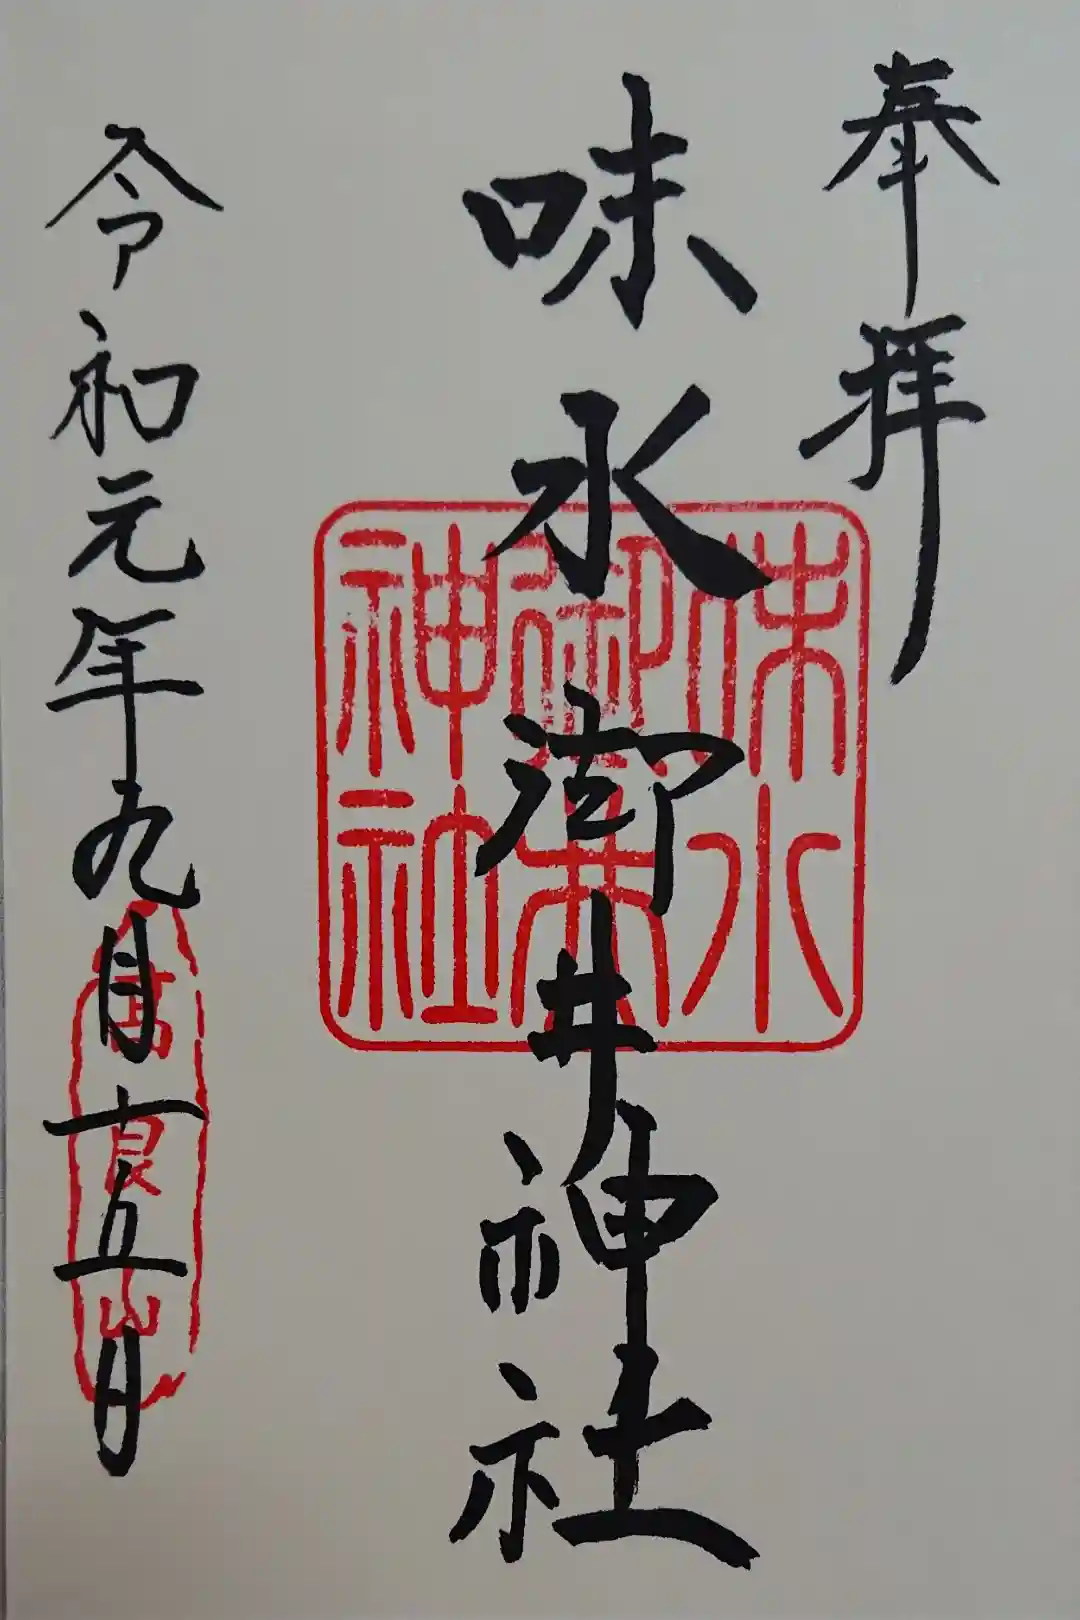 奉拝
味水御井神社
令和元年九月十五日
味水
御井
神社
高良山